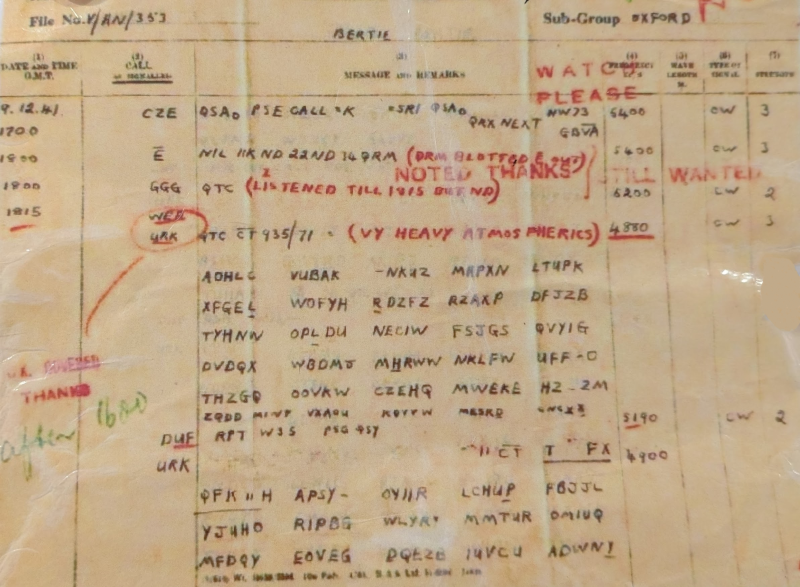 File No. Y/RN/353 Sub-Group OXFORD
BERTIE
(1) (2) (3) (4) (5) (6) (7)
DATE AND TIME G.M.T. CALL MESSAGE AND REMARKS WAVE LENGTH M. TYPE OF SIGNAL STRENGTH
WATCH
PLEASE
9.12.41 CZE QSA0 PSE CALL K SRI QSA0 NW73 6400 CW 3
1700 QRX NEXT GBVA
1800 E NIL 11K ND 22ND 74QRM (QRM BLOTTED E OUT) 5400 CW 3
NOTED THANKS STILL WANTED
1800 GGG QTC (LISTENED TILL 1815 BUT ND) 6200 CW 2
1815 WEK
URK QTC CT 935/71 = (VY HEAVY ATMOSPHERICS) 4880 CW 3
AOHLC VUBAK -NKUZ MRPXN LTUPK
XFGEL WOFYH RDZFZ RZAXP DFJZB
TYHNW OPLDU NECIW FSJGS QVYIG
DVDQX WBDMJ MHRWW NKLFW UFF-O
COVERED
THANKS
THZGQ OOVKW CZEHQ MWEKE HZ-2M
5190 CW 2
after 1600
DUF RPT W3S PSG QSY
URK "11 CT T " FX 4900
QFK11H APSY- OY11R LCHUP FBJJL
YJUHO RIPBG WLYRY MMTUR OMIUQ
MFDQY EOVEG DQEZB IUVCU ADWNY